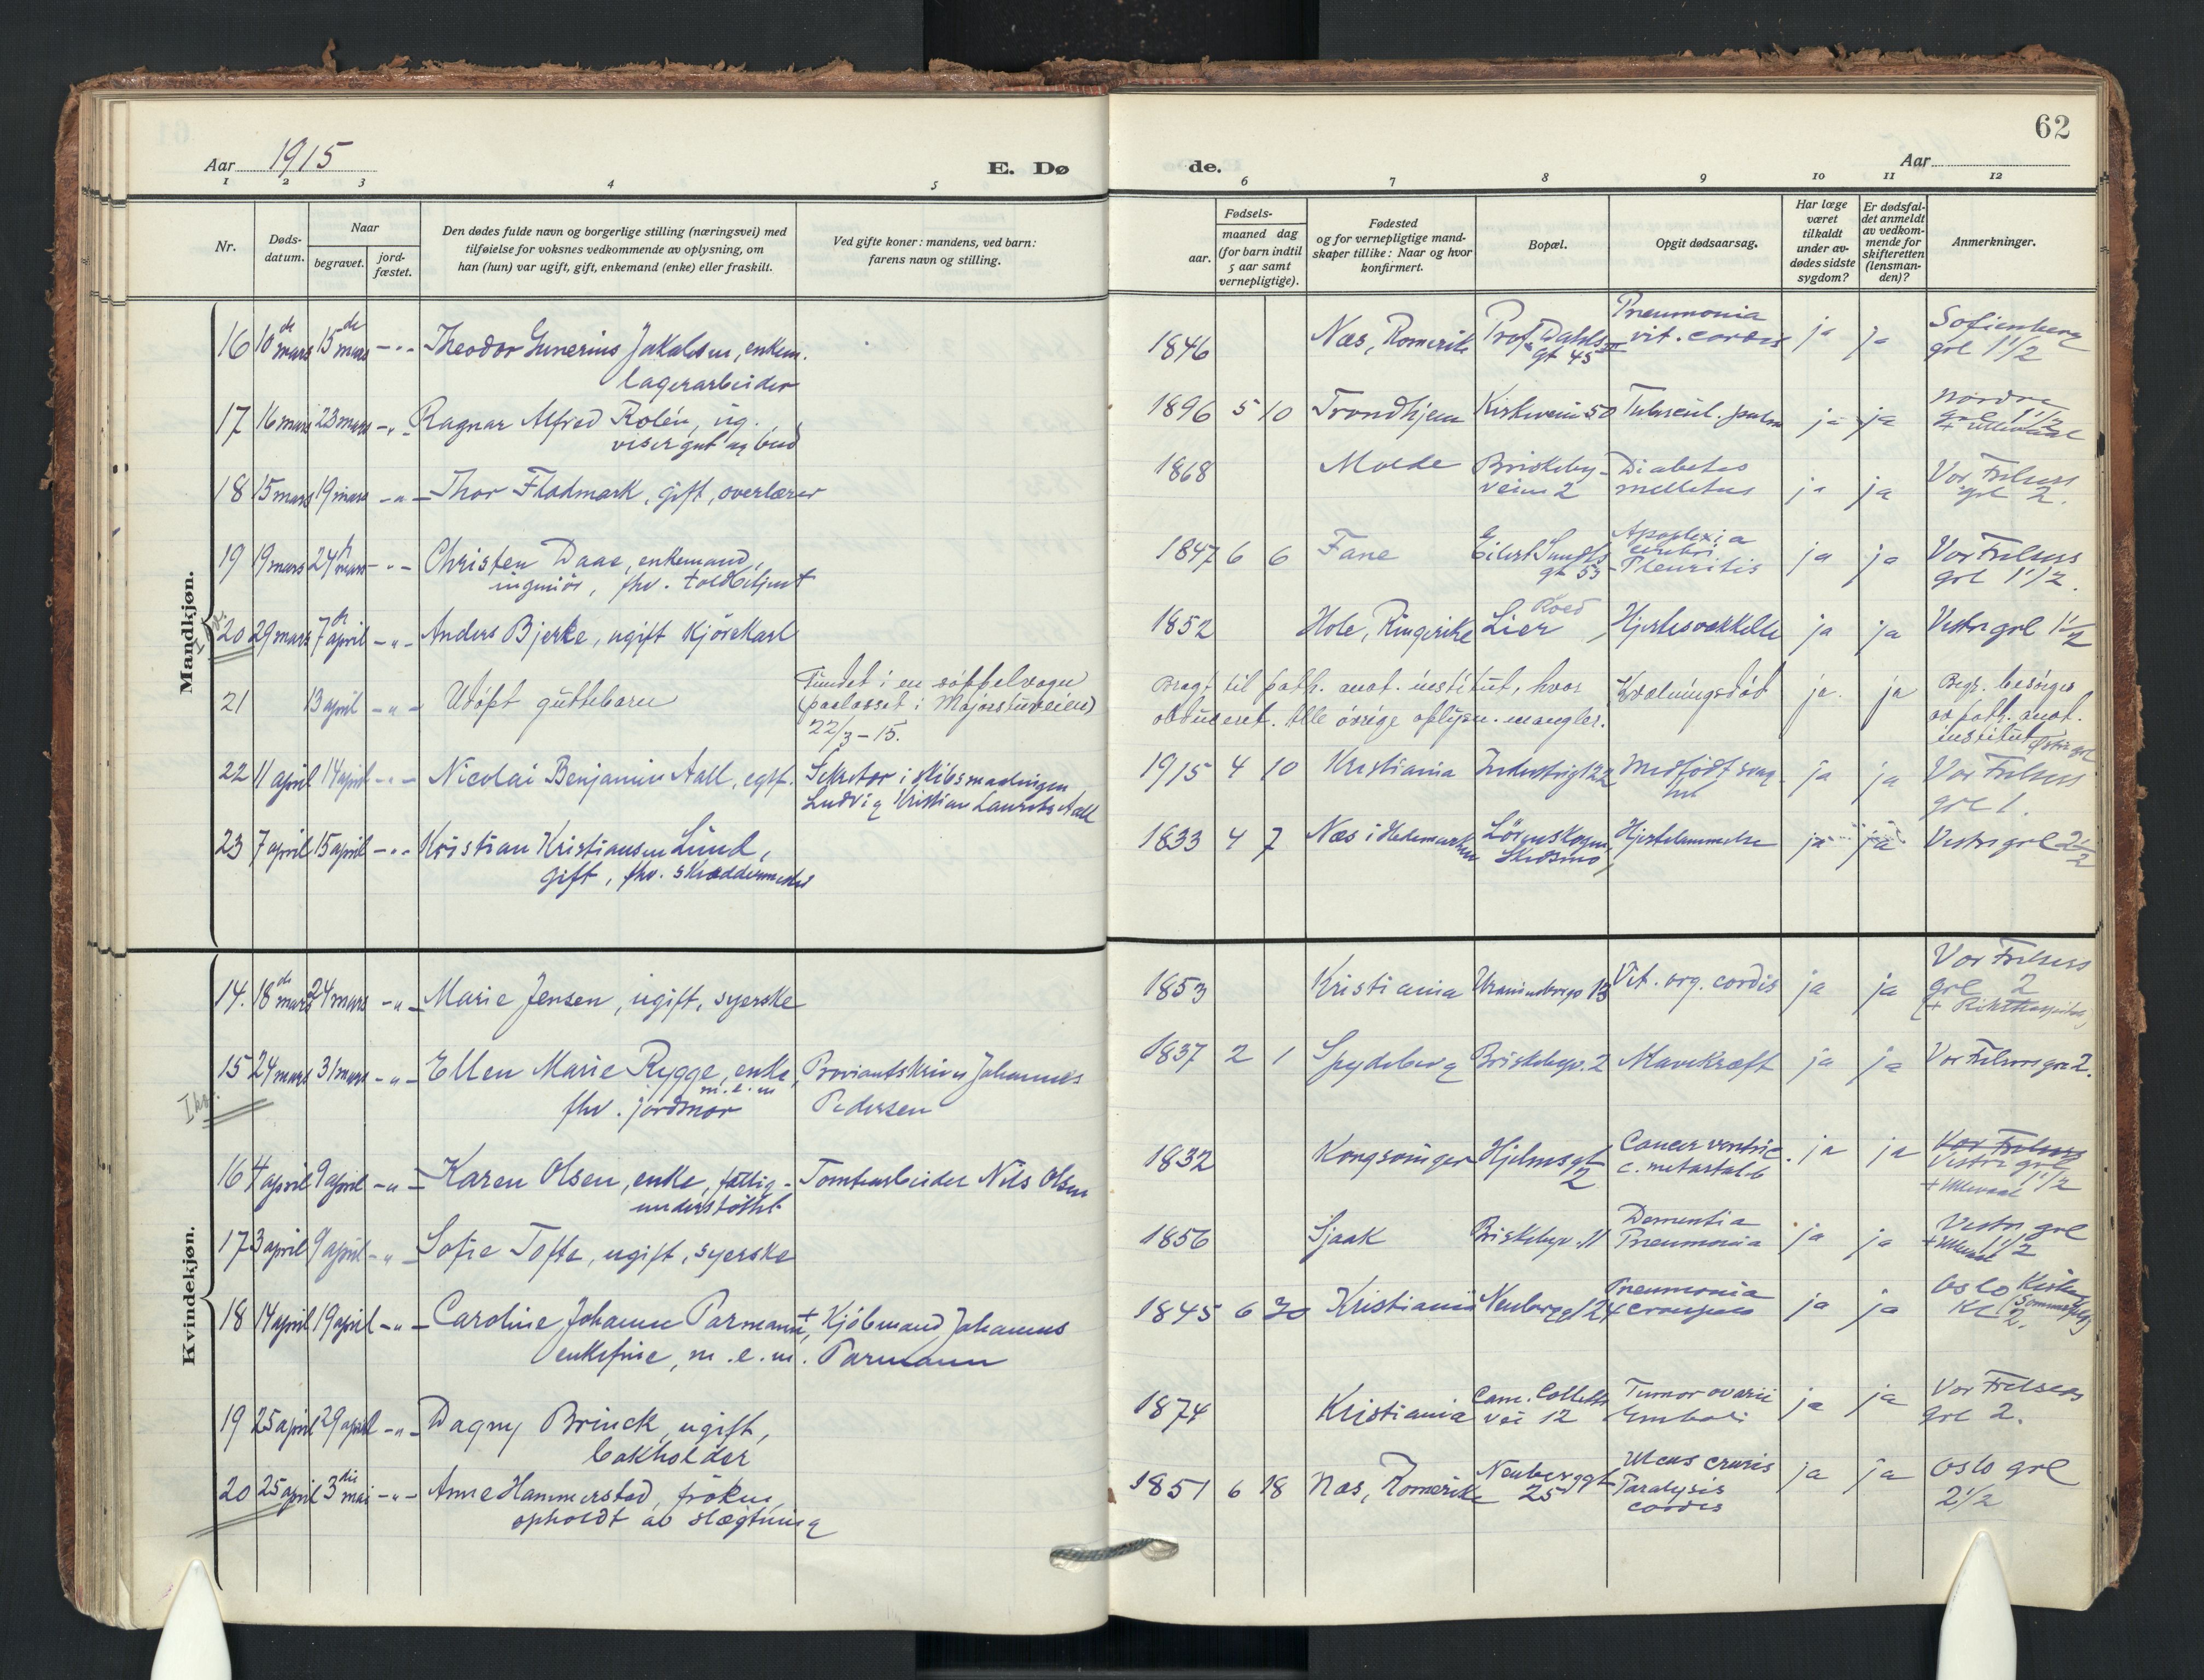 62
Aar 1915
E. Dø
de.
Aar
1 2 3 4 5 6 7 8 9 10 11 12
Nr.
Døds-
datum.
Naar
begravet.
jord-
fæstet.
Den dødes fulde navn og borgerlige stilling (næringsvei) med
tilføielse for voksnes vedkommende av oplysning, om
han (hun) var ugift, gift, enkemand (enke) eller fraskilt.
Ved gifte koner: mandens, ved barn:
farens navn og stilling.
Fødsels-
aar.
maaned dag
(for barn indtil
5 aar samt
vernepligtige).
Fødested
og for vernepligtige mand-
skaper tillike: Naar og hvor
konfirmert.
Bopæl.
Opgit dødsaarsag.
Har læge
været
tilkaldt
under av-
dødes sidste
sygdom?
Er dødsfal-
det anmeldt
av vedkom-
mende for
skifteretten
(lensman-
den)?
Anmerkninger.
Mandkjøn.
16 10de mars 15de mars -"- Theodor Gunerius Jakobsen, enkem.
lagerarbeider
1846 Næs, Romerike Prof. Dahls gt 45 III Pneumonia
vit. cordis ja ja Sofienberg
grl 1 1/2
17 16 mars 23 mars -"- Ragnar Alfred Rolén, ug.
visergut og bud
1896 5 10 Trondhjem Kirkeveien 50 Tubercul. pulm ja ja Nordre
grl 1 1/2
+ Ullevaal
18 15 mars 19 mars -"- Thor Flodmark, gift, overlærer
1868 Molde Briskeby-
veien 2 Diabetes
mellitus ja ja Vor Frelsers
grl 2.
19 19 mars 24 mars -"- Christen Daae, enkemand,
ingeniör, fhv. toldbetjent
1847 6 6 Fane Eilert Sundts
gt 53 Apoplexia
cerebri
Pleuritis ja ja Vor Frelsers
grl 1 1/2.
20 29 mars 7de april -"- Anders Bjerke, ugift kjörekarl
1852 Hole, Ringerike Lier Hjertesvækkelse ja ja Vestre grl 1 1/2
21 13 april -"- Udöpt guttebarn Fundet i en söppelvogn
(paalasset i Majorstuveien)
22/3 - 15.
Bragt til path. anat. institut, hvor
obduceret. Alle övrige oplysn. mangler.
Kvælningsdöd ja. ja Begr. besörges
av path. anat.
institut Østre grl
22 11 april 14 april -"- Nicolai Benjamin Aall, egtf. Sekretær i skibsmaalingen
Ludvig Kristian Laurits Aall
1915 4 10 Kristiania Industrigt 22 Medfödt svag-
het ja ja Vor Frelsers
grl 1.
23 7 april 15 april -"- Kristian Kristiansen Lund,
gift, fhv. skræddermester
1833 4 7 Næs i Hedemarken Lörenskogen,
Skedsmo Hjertelammelse ja ja Vestre grl 2 1/2
Kvindekjøn.
14. 18de mars 24 mars -"- Marie Jensen, ugift, syerske
1853 Kristiania Uranienborgv 13 Vit. org. cordis ja ja Vor Frelsers
grl 2
(+ Rikshospitalet)
15 24 mars 31 mars -"- Ellen Marie Rygge, enke, Proviantskriver Johannes
m. e. m
fhv. jordmor Pedersen
1837 2 1 Spydeberg Briskebyv. 2 Mavekræft ja ja Vor Frelsers grl 2.
16 4 april 9 april -"- Karen Olsen, enke, fattig- Tomtearbeider Nils Olsen
understöttet
1832 Kongsvinger Hjelmsgt
2 Cancer ventric.
c. metastasib ja ja Vor Frelsers
Vestre grl
1 1/2
+ Ullevaal
17 3 april 9 april -"- Sofie Tofte, ugift, syerske
1856 Sjaak Briskebyv. 11 Dementia
Pneumonia ja ja Vestre grl
1 1/2
+ Ullevaal
18 14 april 19 april -"- Caroline Johanne Parmann, + Kjöbmand Johannes
enkefrue, m. e. m. Parmann
1845 6 30 Kristiania Neuberggt 24 Pneumonia
crouposa ja ja Oslo Kirke
19 25 april 29 april -"- Dagny Brinck, ugift,
bokholder
1874 Kristiania Cam. Colletts
vei 12 Tumor ovarii
Emboli ja ja Vor Frelsers
grl 2.
20 25 april 3die mai -"- Anne Hammerstad, fröken,
opholdt av slægtning
1851 6 18 Næs, Romerike Neuberggt
25 Ulcus cruris
Paralysis
cordis ja ja Oslo grl
2 1/2